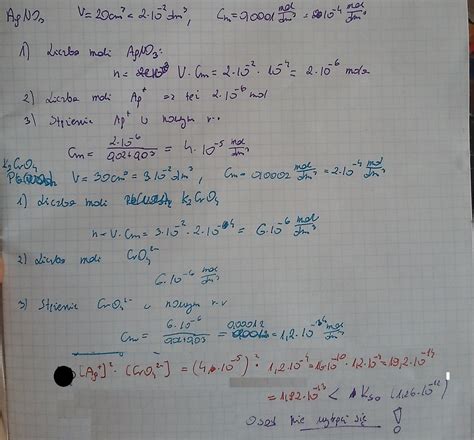 AgNO₃ V = 20cm³ = 2·10⁻² dm³, Cm = 0,0001 mol/dm³ = 10⁻⁴ mol/dm³
1) Liczba moli AgNO₃:
n = V·Cm = 2·10⁻²·10⁻⁴ = 2·10⁻⁶ mola
2) Liczba moli Ag⁺ też 2·10⁻⁶ mol
3) Stężenie Ag⁺ w nowym r-r
Cm = 2·10⁻⁶ / 0,02+0,03 = 4·10⁻⁵ mol/dm³
K₂CrO₄ V = 30cm³ = 3·10⁻² dm³, Cm = 0,0002 mol/dm³ = 2·10⁻⁴ mol/dm³
1) Liczba moli K₂CrO₄
n = V·Cm = 3·10⁻²·2·10⁻⁴ = 6·10⁻⁶ mol/dm³
2) Liczba moli CrO₄²⁻
6·10⁻⁶ mol/dm³
3) Stężenie CrO₄²⁻ w nowym r-r
Cm = 6·10⁻⁶ / 0,02+0,03 = 0,00012 = 1,2·10⁻⁴ mol/dm³
[Ag⁺]²·[CrO₄²⁻] = (4·10⁻⁵)²·1,2·10⁻⁴ = 16·10⁻¹⁰·12·10⁻⁵ = 19,2·10⁻¹⁴
= 1,92·10⁻¹³ < Kso (1,26·10⁻¹²)
Osad nie wytrąci się!